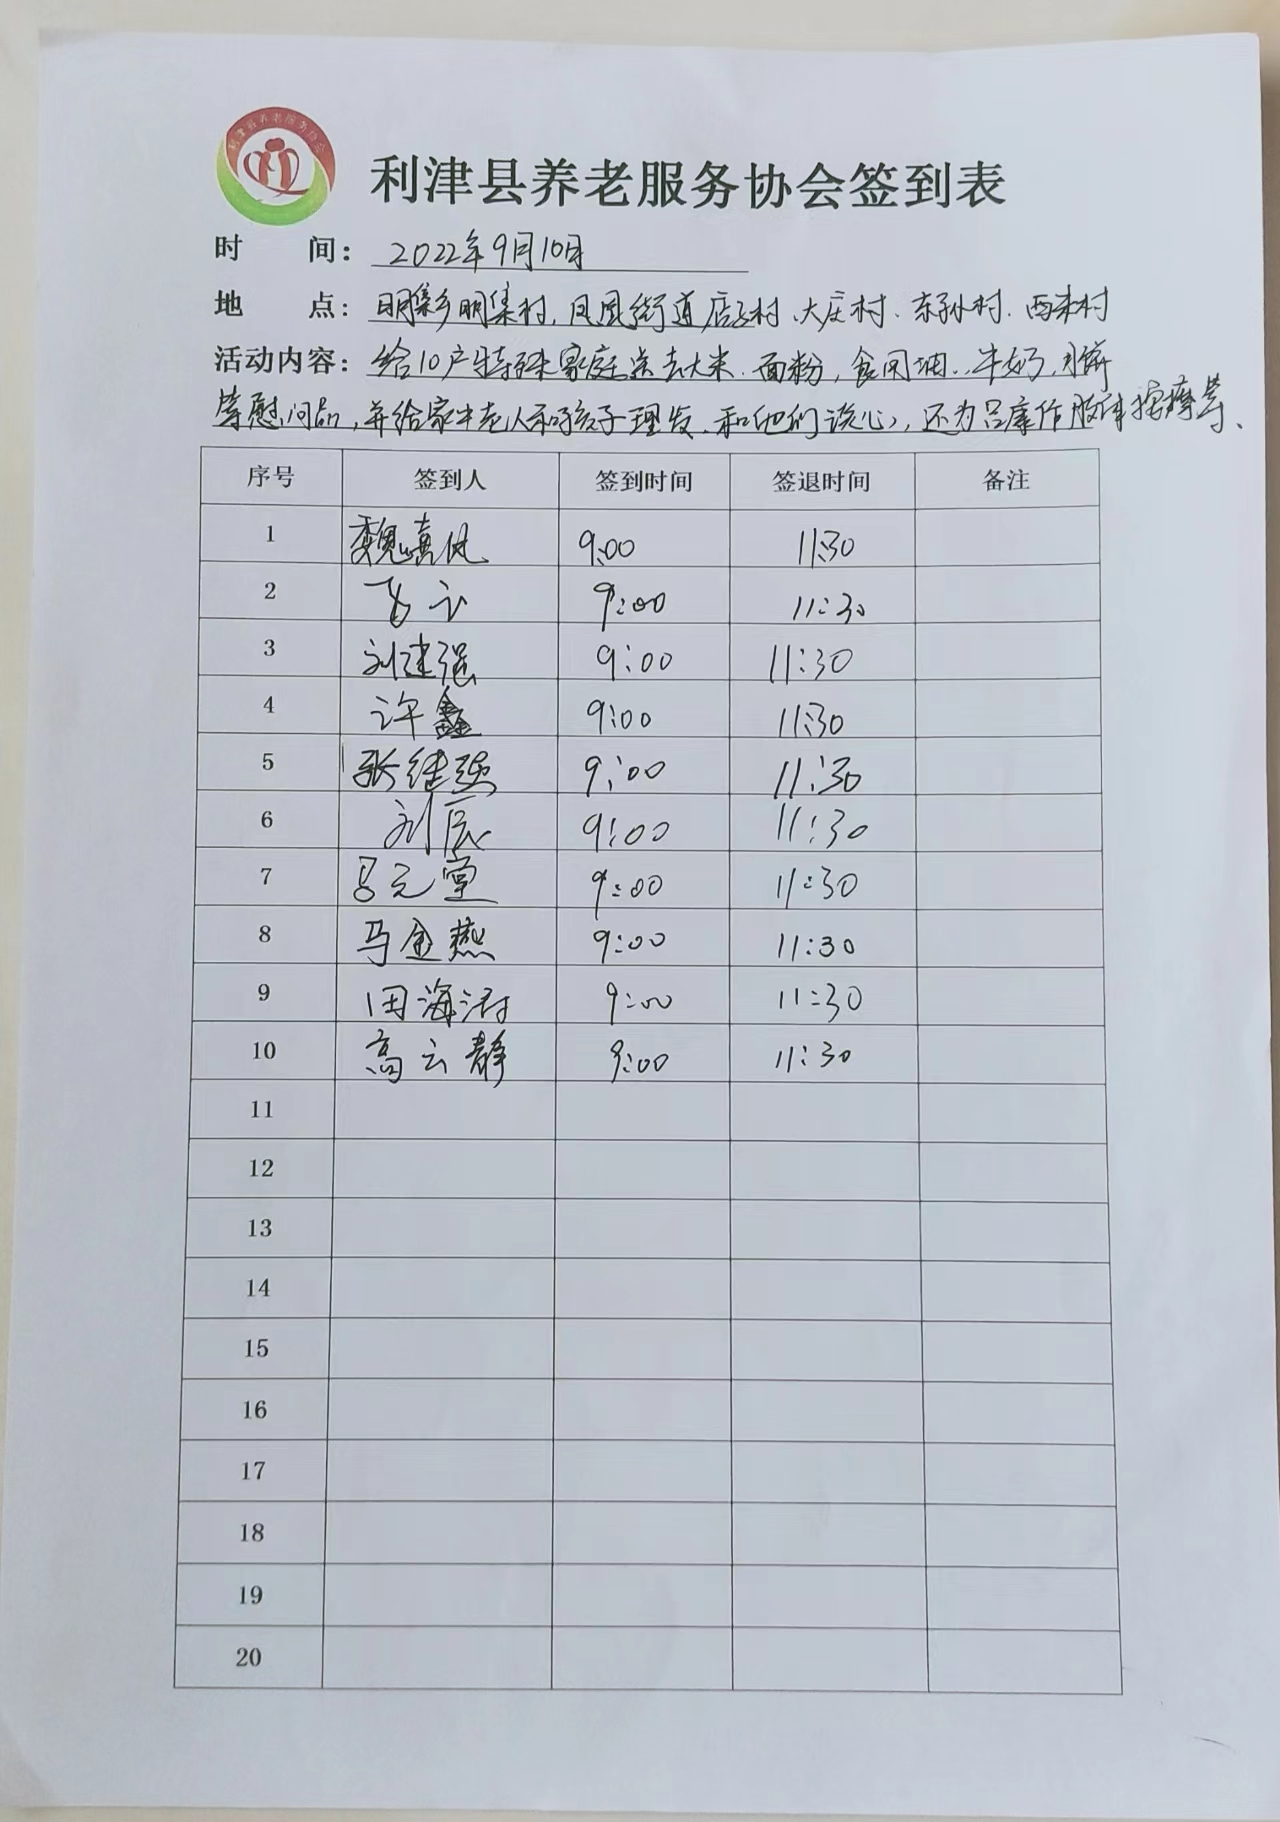 利津县养老服务协会
利津县养老服务协会签到表
时 间: 2022年9月10日
地 点: 明集乡明集村、凤凰街道店子村、大庄村、东孙村、西宋村
活动内容: 给10户特殊家庭送去大米、面粉,食用油、牛奶,月饼
等慰问品,并给家中老人和孩子理发、和他们谈心,还为吕康作肢体按摩等、
序号 签到人 签到时间 签退时间 备注
1 魏嘉 9:00 11:30
2 9:00 11:30
3 刘建强 9:00 11:30
4 许鑫 9:00 11:30
5 张继强 9:00 11:30
6 刘辰 9:00 11:30
7 吕元堂 9:00 11:30
8 马金燕 9:00 11:30
9 田海涛 9:00 11:30
10 高云静 9:00 11:30
11
12
13
14
15
16
17
18
19
20